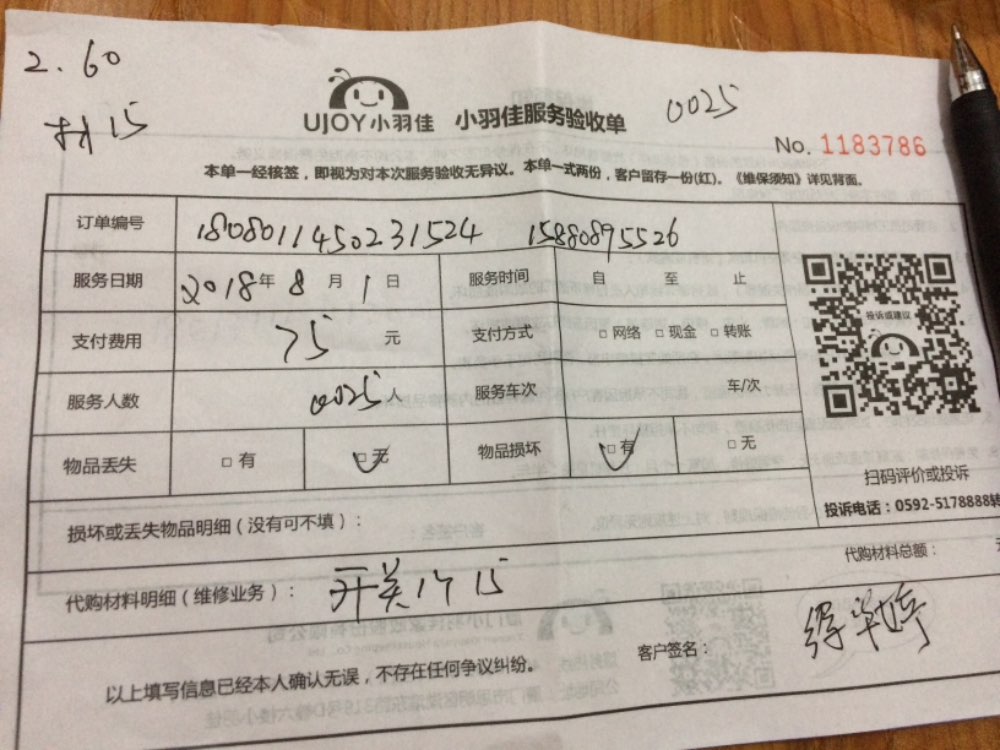 2.60
材15
UJOY小羽佳 小羽佳服务验收单
0025
No. 1183786
本单一经核签，即视为对本次服务验收无异议。本单一式两份，客户留存一份(红)。《维保须知》详见背面。
订单编号 180801145023152​4 15880895526
服务日期 2018年 8 月 1 日 服务时间 自 至 止
支付费用 75 元 支付方式 □ 网络 □ 现金 □ 转账
服务人数 0025人 服务车次 车/次
物品丢失 □ 有 □ 无 物品损坏 □ 有 □ 无
投诉或建议
扫码评价或投诉
投诉电话：0592-5178888转
损坏或丢失物品明细（没有可不填）：
代购材料总额：
代购材料明细（维修业务）： 开关1个 15
客户签名：
以上填写信息已经本人确认无误，不存在任何争议纠纷。